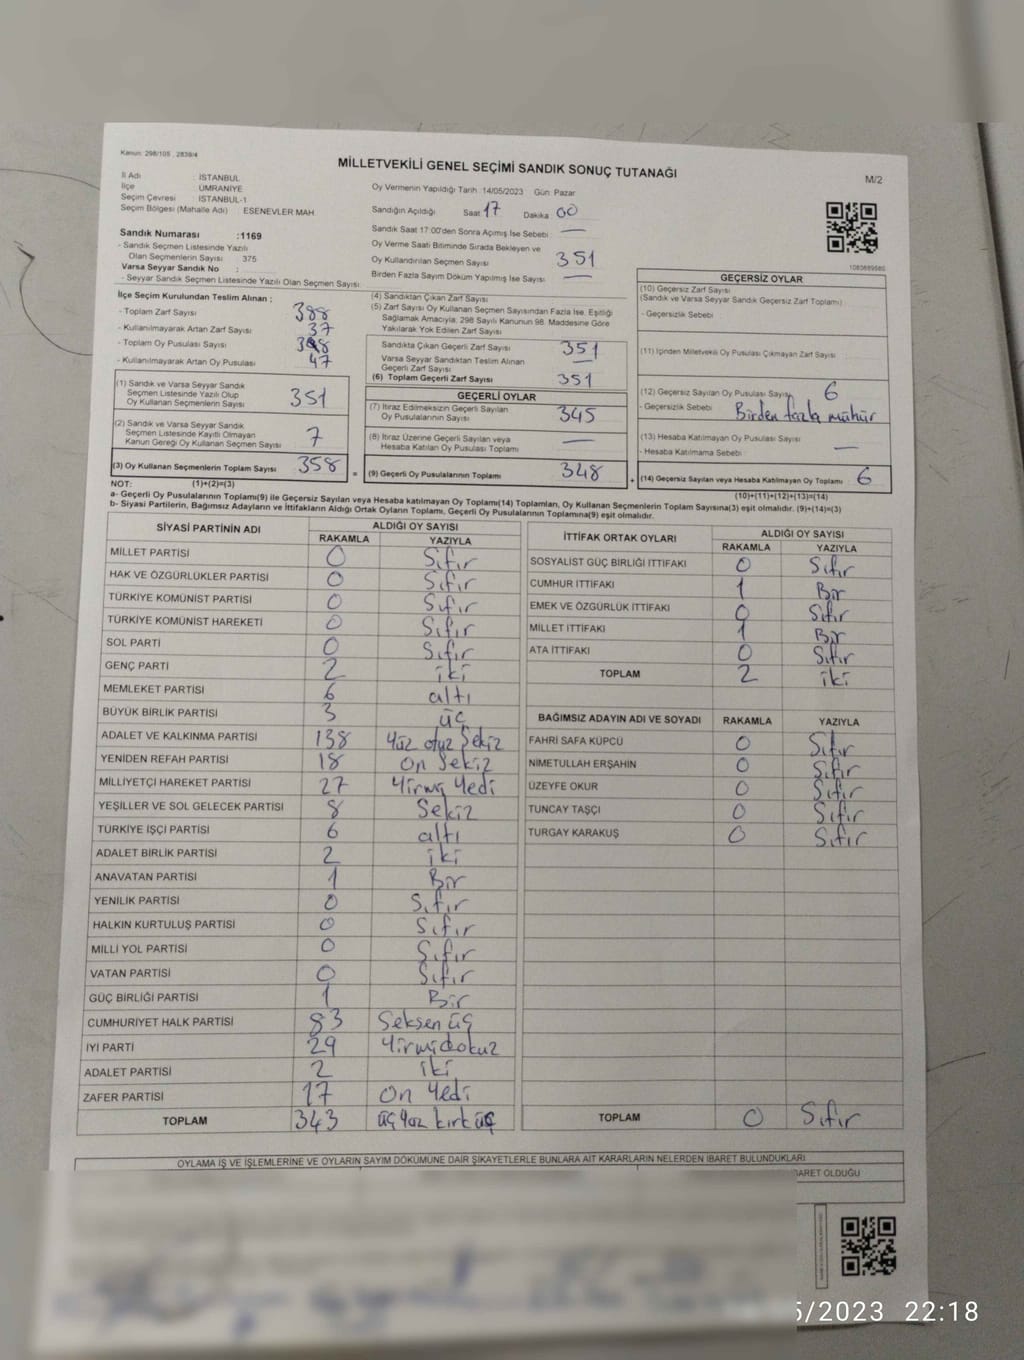 Kanun: 298/105 , 2839/4
MİLLETVEKİLİ GENEL SEÇİMİ SANDIK SONUÇ TUTANAĞI
M/2
İl Adı : İSTANBUL
İlçe : ÜMRANİYE
Seçim Çevresi : İSTANBUL-1
Seçim Bölgesi (Mahalle Adı) : ESENEVLER MAH.
Sandık Numarası :1169
- Sandık Seçmen Listesinde Yazılı
Olan Seçmenlerin Sayısı : 375
Varsa Seyyar Sandık No :
- Seyyar Sandık Seçmen Listesinde Yazılı Olan Seçmen Sayısı:
Oy Vermenin Yapıldığı Tarih :14/05/2023 Gün: Pazar
Sandığın Açıldığı Saat 17 Dakika 00
Sandık Saat 17:00'den Sonra Açılmış İse Sebebi : —
Oy Verme Saati Bitiminde Sırada Bekleyen ve
Oy Kullandırılan Seçmen Sayısı : 351
Birden Fazla Sayım Döküm Yapılmış İse Sayısı : —
1080689585
İlçe Seçim Kurulundan Teslim Alınan ;
- Toplam Zarf Sayısı : 388
- Kullanılmayarak Artan Zarf Sayısı : 37
- Toplam Oy Pusulası Sayısı : 398
- Kullanılmayarak Artan Oy Pusulası : 47
(1) Sandık ve Varsa Seyyar Sandık
Seçmen Listesinde Yazılı Olup
Oy Kullanan Seçmenlerin Sayısı : 351
(2) Sandık ve Varsa Seyyar Sandık
Seçmen Listesinde Kayıtlı Olmayan
Kanun Gereği Oy Kullanan Seçmen Sayısı : 7
(3) Oy Kullanan Seçmenlerin Toplam Sayısı : 358
(4) Sandıktan Çıkan Zarf Sayısı :
(5) Zarf Sayısı Oy Kullanan Seçmen Sayısından Fazla İse, Eşitliği
Sağlamak Amacıyla; 298 Sayılı Kanunun 98. Maddesine Göre
Yakılarak Yok Edilen Zarf Sayısı :
Sandıkta Çıkan Geçerli Zarf Sayısı : 351
Varsa Seyyar Sandıktan Teslim Alınan
Geçerli Zarf Sayısı : —
(6) Toplam Geçerli Zarf Sayısı : 351
GEÇERLİ OYLAR
(7) İtiraz Edilmeksizin Geçerli Sayılan
Oy Pusulalarının Sayısı : 345
(8) İtiraz Üzerine Geçerli Sayılan veya
Hesaba Katılan Oy Pusulası Toplamı : —
= (9) Geçerli Oy Pusulalarının Toplamı : 348
GEÇERSİZ OYLAR
(10) Geçersiz Zarf Sayısı
(Sandık ve Varsa Seyyar Sandık Geçersiz Zarf Toplamı) :
- Geçersizlik Sebebi :
(11) İçinden Milletvekili Oy Pusulası Çıkmayan Zarf Sayısı :
(12) Geçersiz Sayılan Oy Pusulası Sayısı : 6
- Geçersizlik Sebebi : Birden fazla mühür
(13) Hesaba Katılmayan Oy Pusulası Sayısı :
- Hesaba Katılmama Sebebi : —
+ (14) Geçersiz Sayılan veya Hesaba Katılmayan Oy Toplamı : 6
NOT: (1)+(2)=(3)
(10)+(11)+(12)+(13)=(14)
a- Geçerli Oy Pusulalarının Toplamı(9) ile Geçersiz Sayılan veya Hesaba katılmayan Oy Toplamı(14) Toplamları, Oy Kullanan Seçmenlerin Toplam Sayısına(3) eşit olmalıdır. (9)+(14)=(3)
b- Siyasi Partilerin, Bağımsız Adayların ve İttifakların Aldığı Ortak Oyların Toplamı, Geçerli Oy Pusulalarının Toplamına(9) eşit olmalıdır.
SİYASİ PARTİNİN ADI ALDIĞI OY SAYISI
RAKAMLA YAZIYLA
MİLLET PARTİSİ 0 Sıfır
HAK VE ÖZGÜRLÜKLER PARTİSİ 0 Sıfır
TÜRKİYE KOMÜNİST PARTİSİ 0 Sıfır
TÜRKİYE KOMÜNİST HAREKETİ 0 Sıfır
SOL PARTİ 0 Sıfır
GENÇ PARTİ 2 iki
MEMLEKET PARTİSİ 6 altı
BÜYÜK BİRLİK PARTİSİ 3 üç
ADALET VE KALKINMA PARTİSİ 138 Yüz otuz Sekiz
YENİDEN REFAH PARTİSİ 18 On Sekiz
MİLLİYETÇİ HAREKET PARTİSİ 27 Yirmi Yedi
YEŞİLLER VE SOL GELECEK PARTİSİ 8 Sekiz
TÜRKİYE İŞÇİ PARTİSİ 6 altı
ADALET BİRLİK PARTİSİ 2 iki
ANAVATAN PARTİSİ 1 Bir
YENİLİK PARTİSİ 0 Sıfır
HALKIN KURTULUŞ PARTİSİ 0 Sıfır
MİLLİ YOL PARTİSİ 0 Sıfır
VATAN PARTİSİ 0 Sıfır
GÜÇ BİRLİĞİ PARTİSİ 1 Bir
CUMHURİYET HALK PARTİSİ 83 Seksen üç
İYİ PARTİ 29 Yirmi dokuz
ADALET PARTİSİ 2 iki
ZAFER PARTİSİ 17 On Yedi
TOPLAM 343 üç Yüz kırk üç
İTTİFAK ORTAK OYLARI ALDIĞI OY SAYISI
RAKAMLA YAZIYLA
SOSYALİST GÜÇ BİRLİĞİ İTTİFAKI 0 Sıfır
CUMHUR İTTİFAKI 1 Bir
EMEK VE ÖZGÜRLÜK İTTİFAKI 0 Sıfır
MİLLET İTTİFAKI 1 Bir
ATA İTTİFAKI 0 Sıfır
TOPLAM 2 iki
BAĞIMSIZ ADAYIN ADI VE SOYADI RAKAMLA YAZIYLA
FAHRİ SAFA KÜPCÜ 0 Sıfır
NİMETULLAH ERŞAHİN 0 Sıfır
ÜZEYFE OKUR 0 Sıfır
TUNCAY TAŞÇI 0 Sıfır
TURGAY KARAKUŞ 0 Sıfır
TOPLAM 0 Sıfır
OYLAMA İŞ VE İŞLEMLERİNE VE OYLARIN SAYIM DÖKÜMÜNE DAİR ŞİKAYETLERLE BUNLARA AİT KARARLARIN NELERDEN İBARET BULUNDUKLARI
BARET OLDUĞU
5/2023 22:18